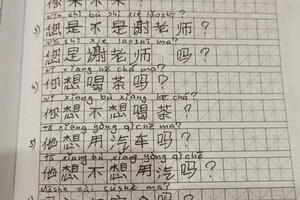 你来不来?
Nín shì bú shì xiè lǎoshī?
您是不是谢老师?
Nín shì xiè lǎoshī ma?
您是谢老师 吗?
4) Nǐ xiǎng hē chá ma?
你想喝茶吗?
Nǐ xiǎng bù xiǎng hē chá?
你想不想喝茶?
Tā xiǎng yòng qì chē ma?
5) 他想用汽车吗?
Tā xiǎng bù xiǎng yòng qì chē
他想不想用汽吗?
Mǎshà zài sùshè ma?